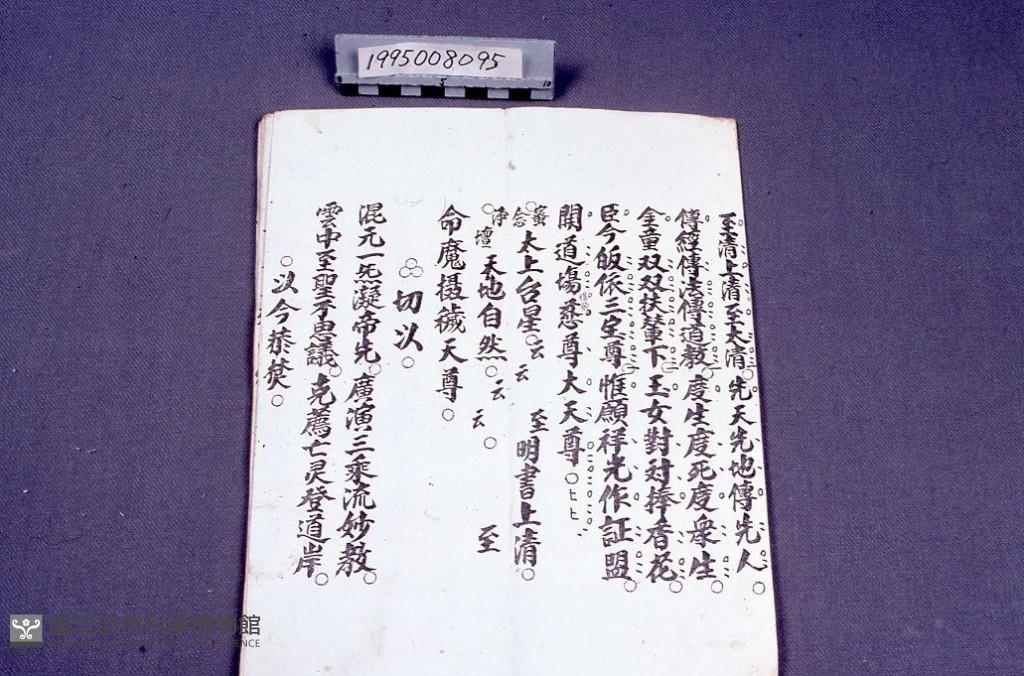 1995008095
至清上清至太清先天先地傳先人
傳經傳法傳道教度生度死度衆生
金童双双扶輦下玉女對对捧香花
臣今皈依三宝尊惟願祥光作証盟
開道塲慈尊大天尊
宻念太上台星云云至明書上清
净壇天地自然云云至
命魔摄穢天尊
切以
混元一炁凝帝先廣演三乘流妙教
雲中至聖不思議克薦亡灵登道岸
以今恭焚
館